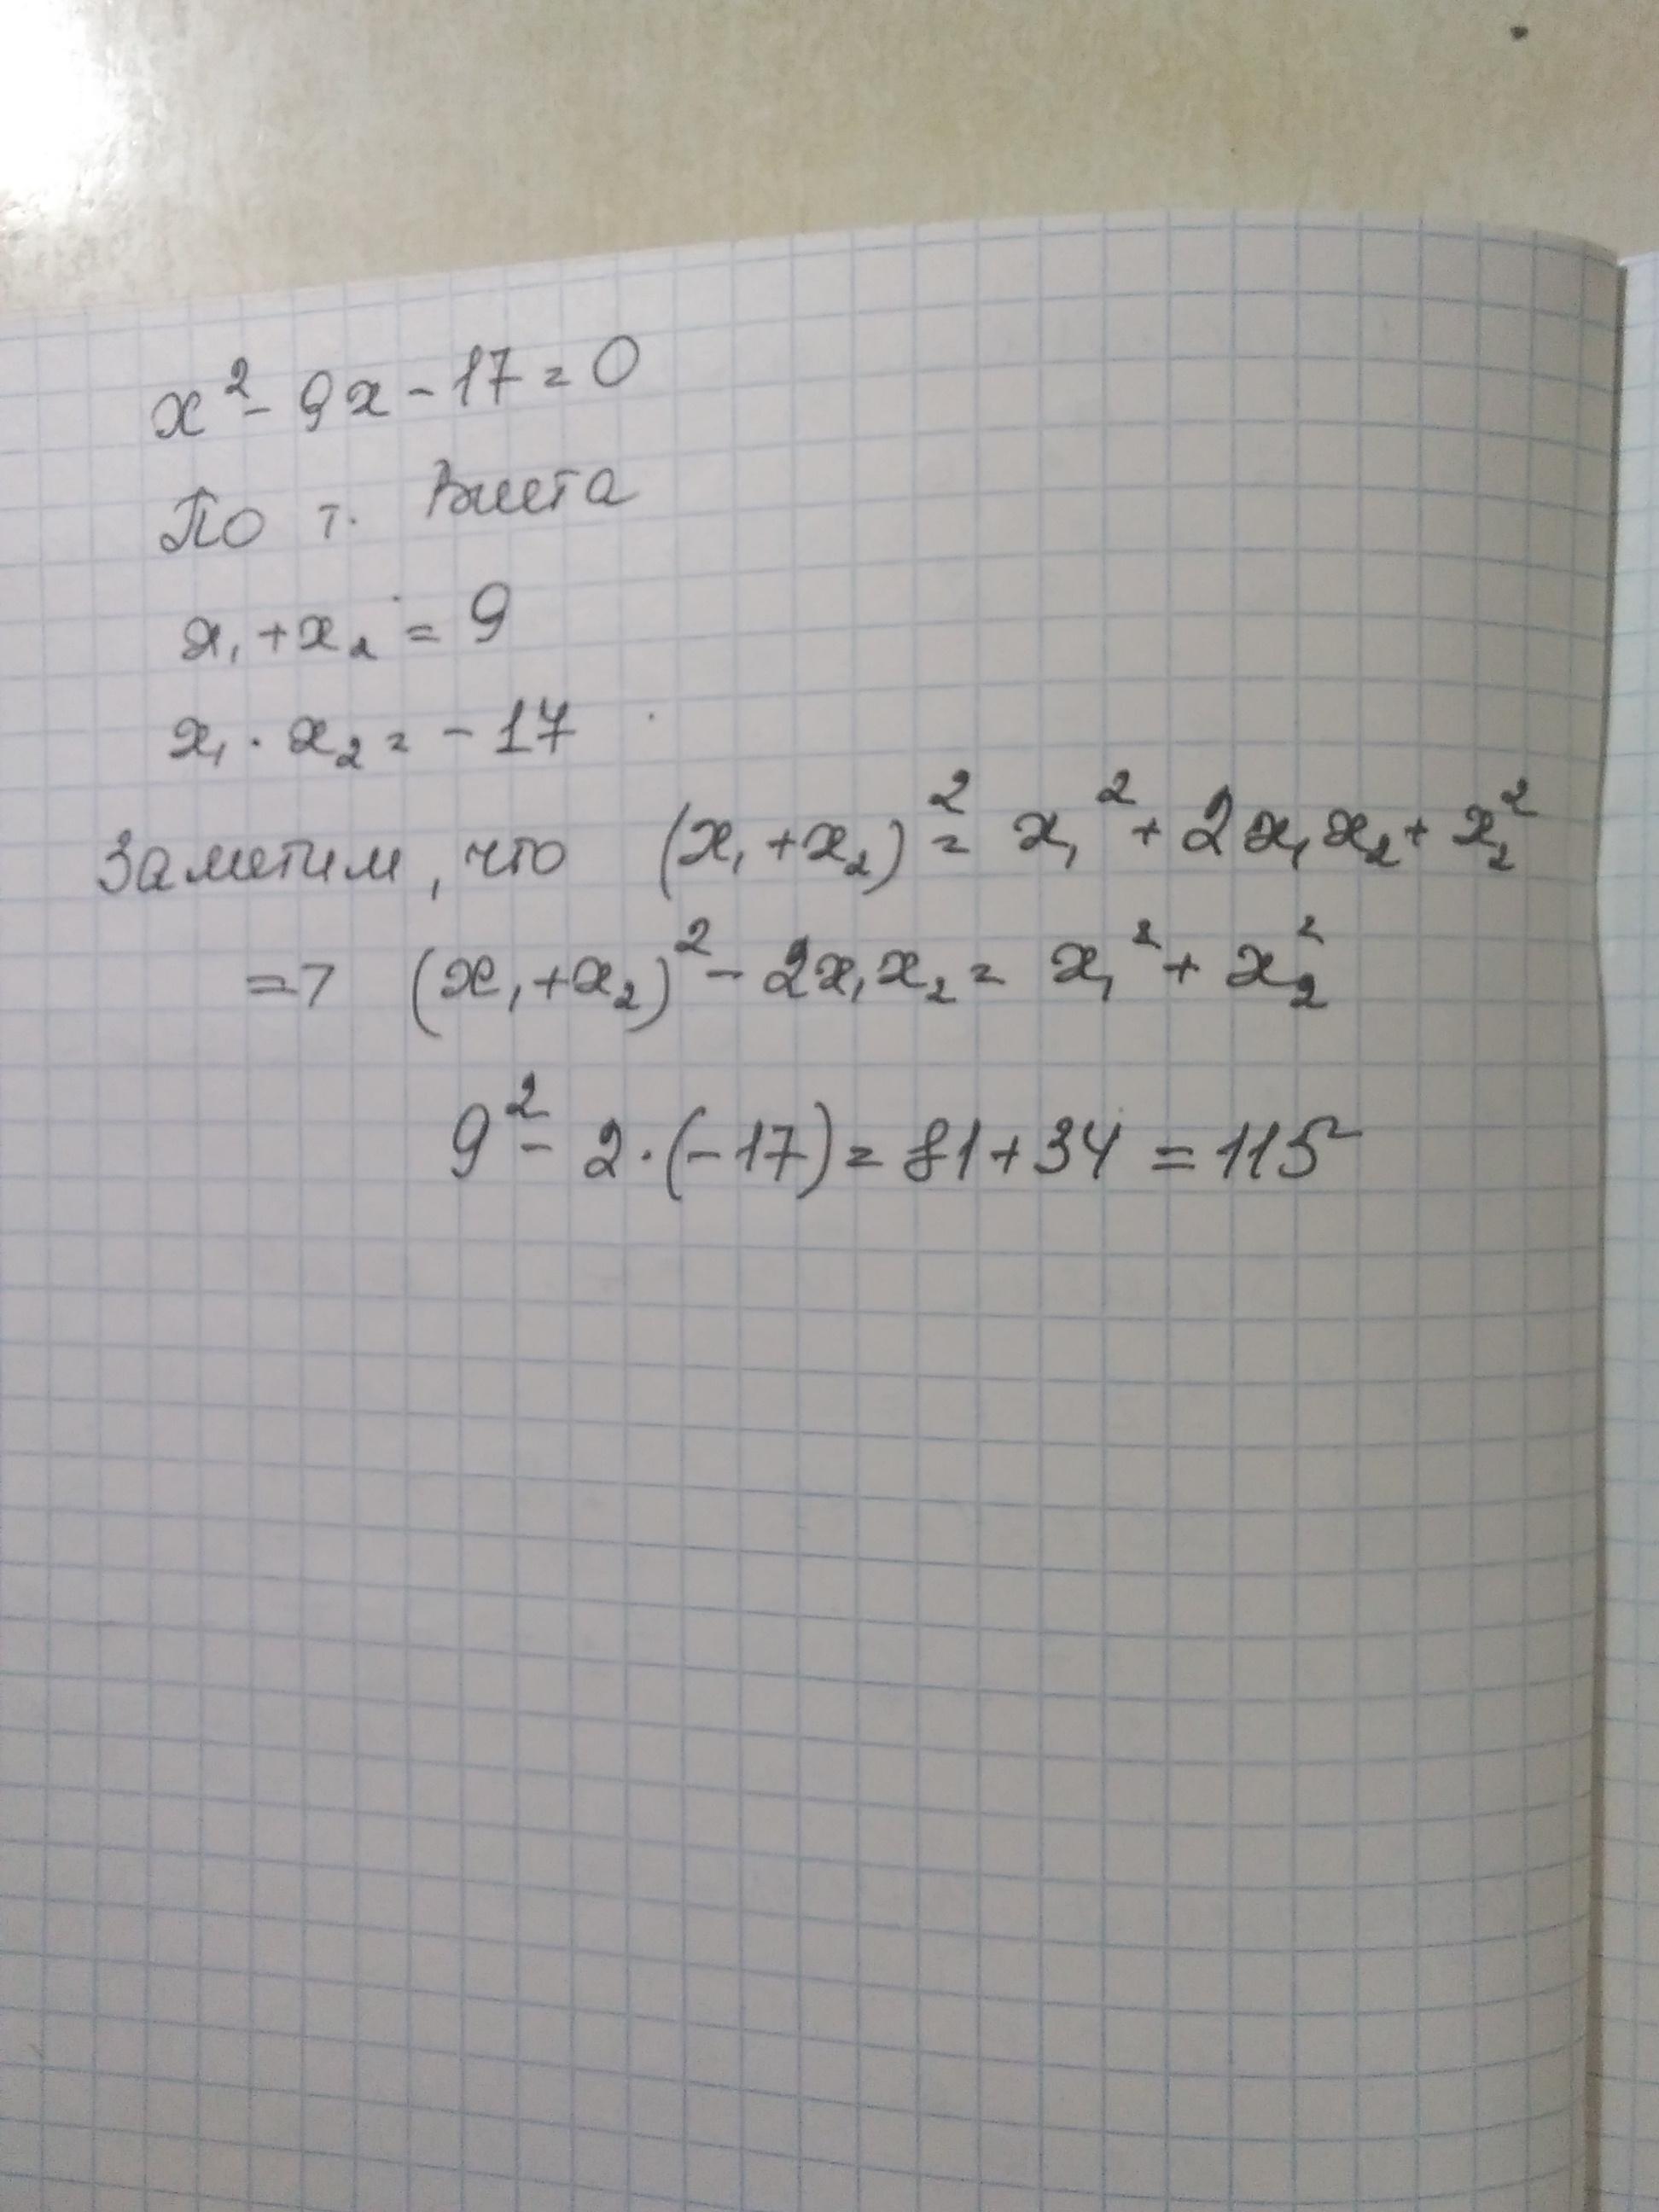 x² - 9x - 17 = 0
По т. Виета
x₁ + x₂ = 9
x₁ · x₂ = - 17
Заметим, что (x₁ + x₂)² = x₁² + 2x₁x₂ + x₂²
=> (x₁ + x₂)² - 2x₁x₂ = x₁² + x₂²
9² - 2·(-17) = 81 + 34 = 115